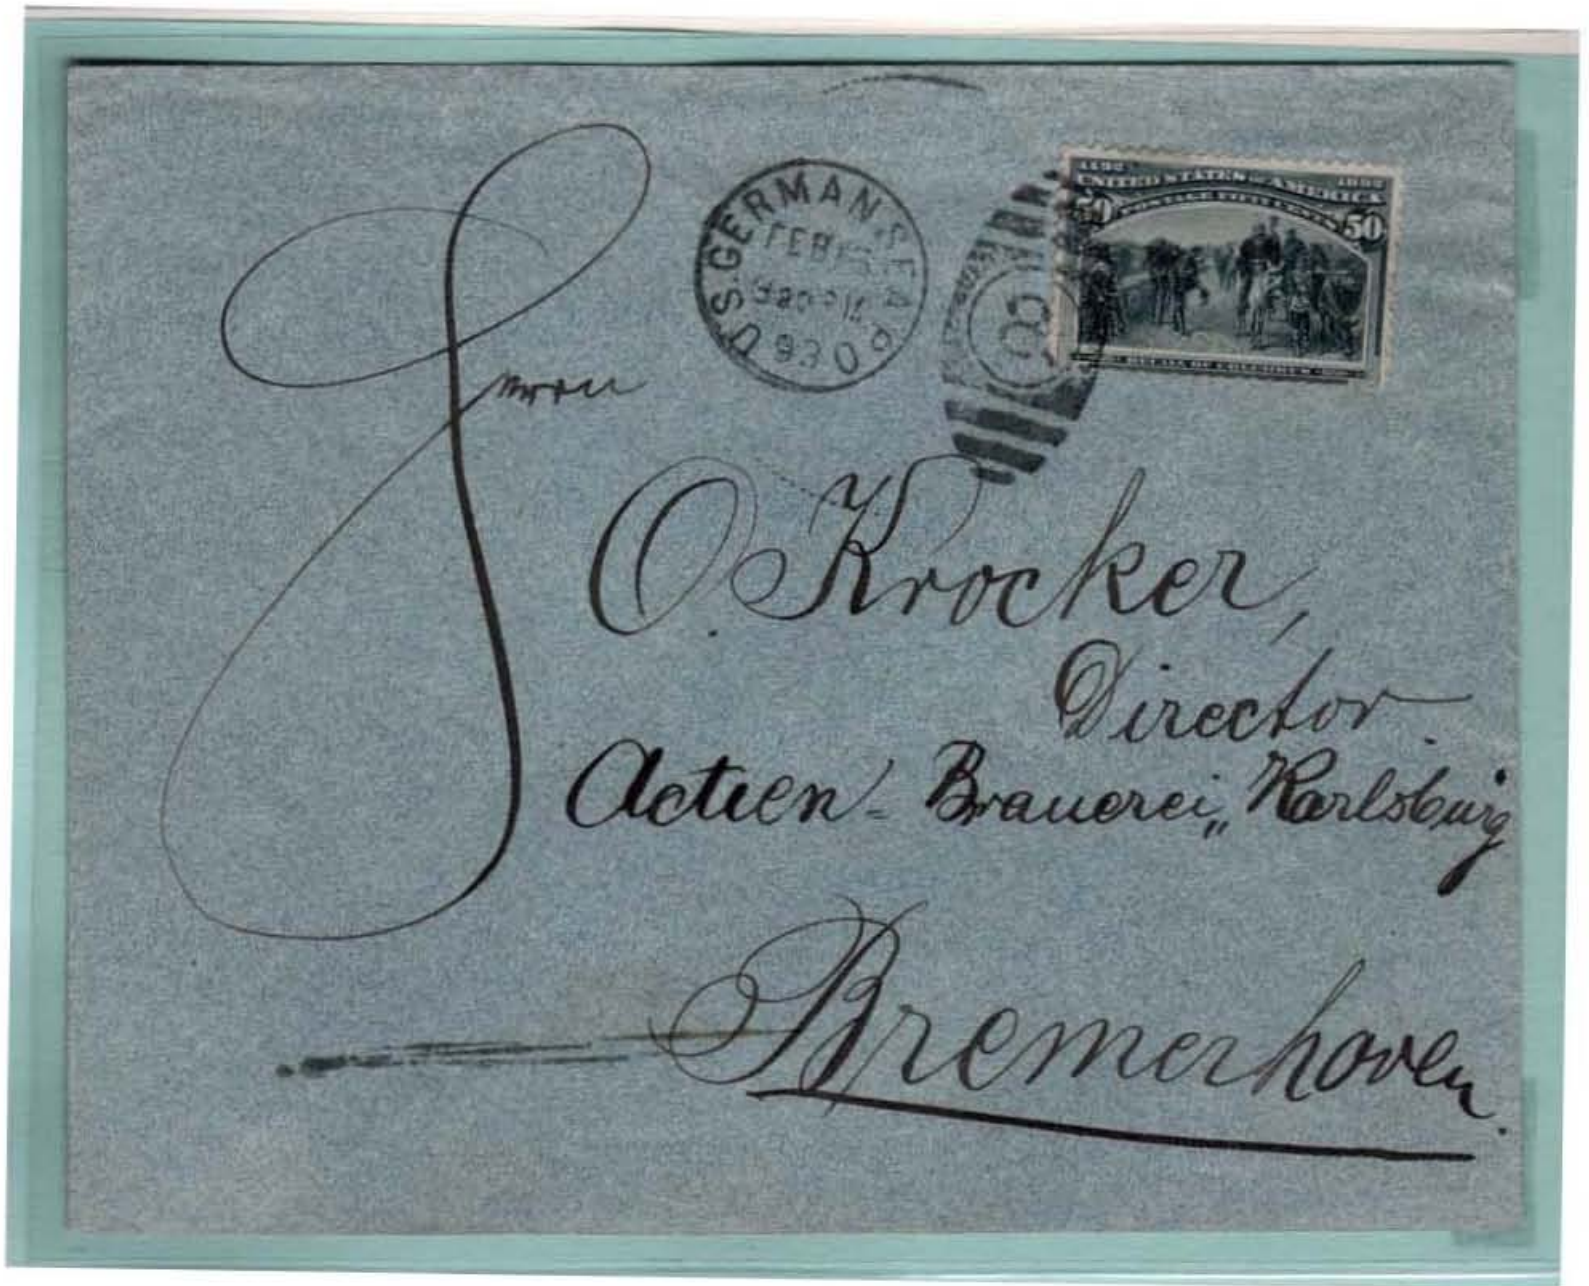 U.S. GERMAN. SEA P.O.
FEB
93
1492 1892
UNITED STATES OF AMERICA
50 POSTAGE FIFTY CENTS 50
RECALL OF COLUMBUS
Herrn
O. Krocker,
Director.
Actien-Brauerei „Karlsburg
Bremerhaven.